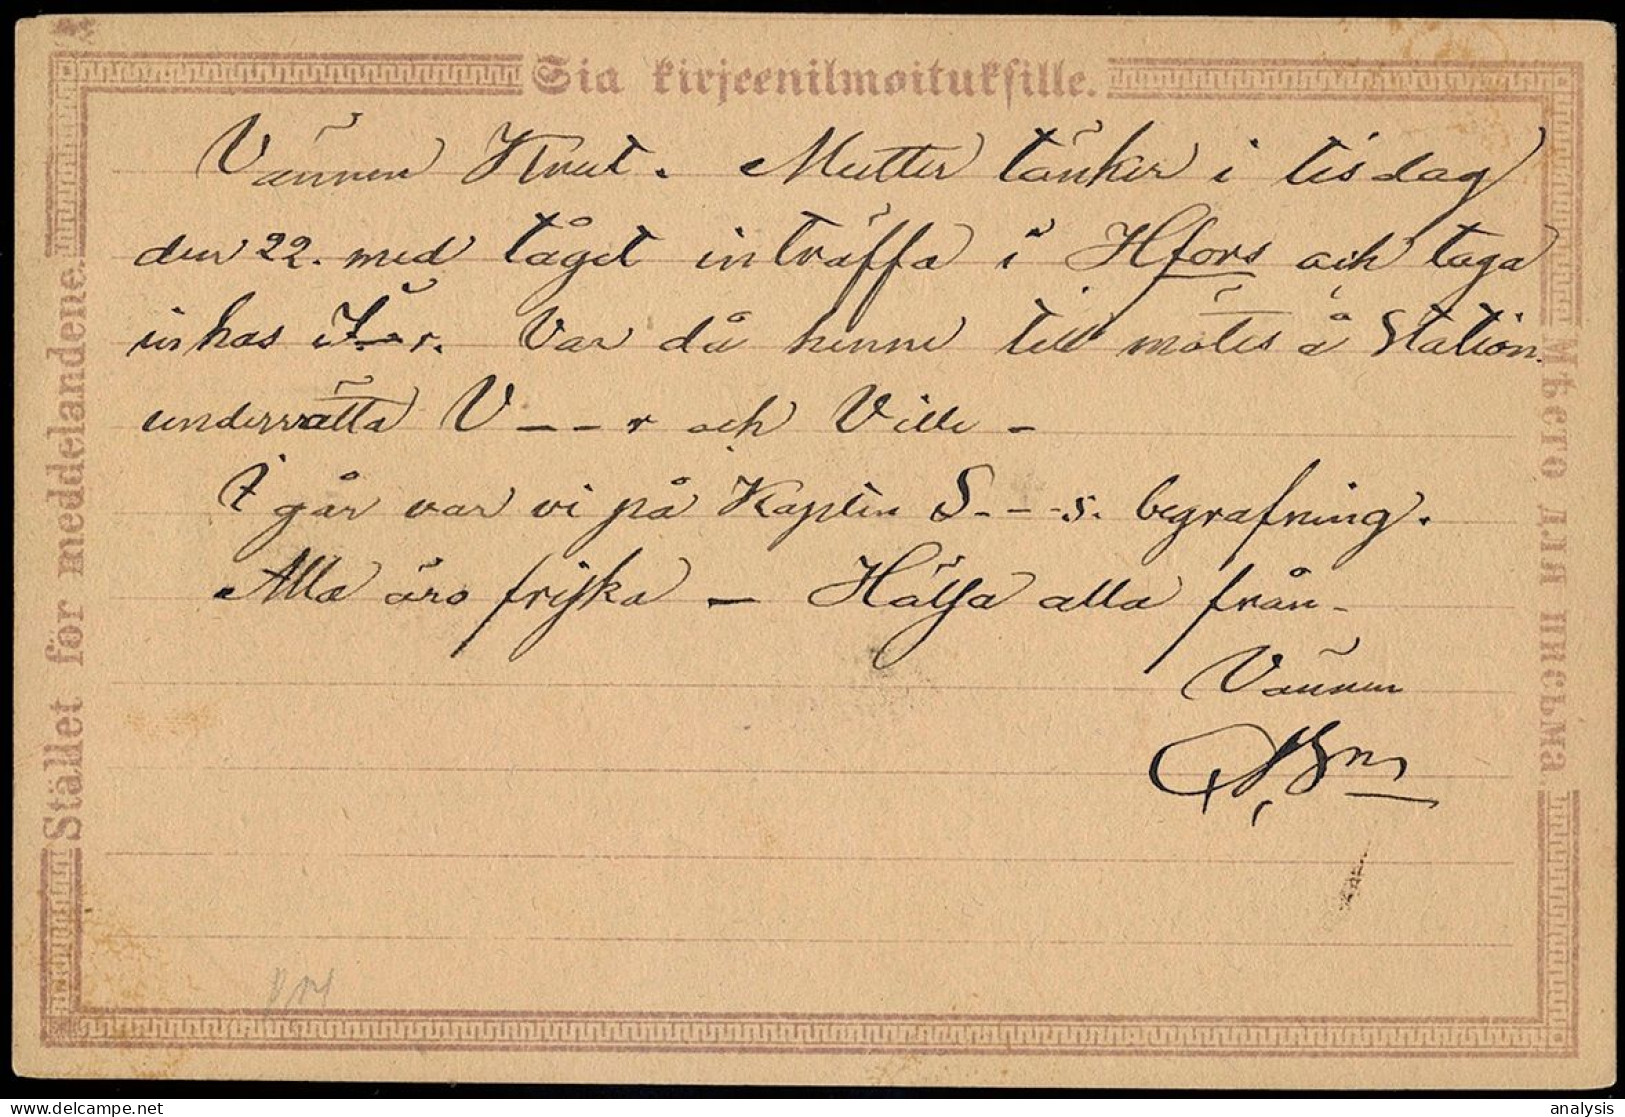 Sia kirjeenilmoituksille.
Stället för meddelandene.
Мѣсто для письма
Vännen Knut. Mutter tänker i tisdag
den 22. med tåget inträffa i Hfors och taga
in hos
Var då henne till mötes å Station.
underrätta V - - - r och Ville -
I går var vi på Kapten S. - - s. begrafning.
Alla äro friska - Hälsa alla från -
Vännen
analysis